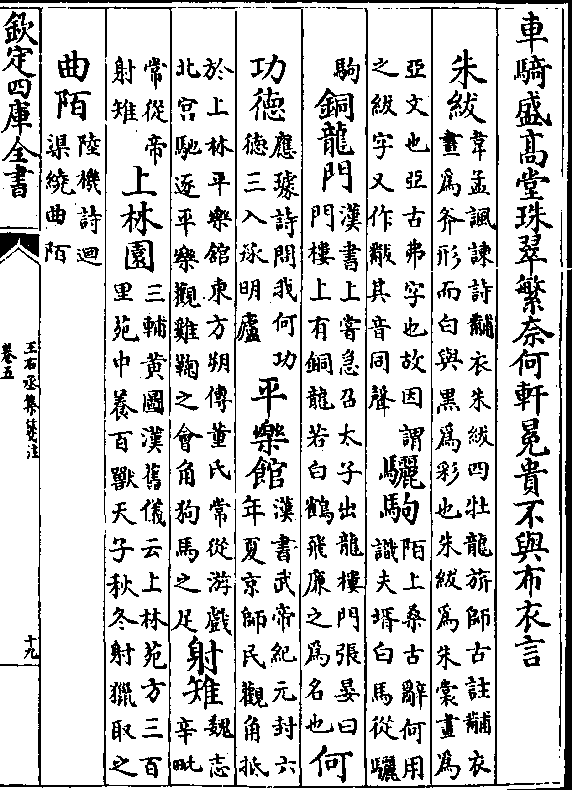 車騎盛高堂珠翠繁奈何軒冕貴不與布衣言
朱紱
韋孟諷諫詩黼衣朱紱四牡龍旂師古註黼衣
畫為斧形而白與黒為彩也朱紱為朱裳畫為
亞文也亞古弗字也故因謂
之紱字又作黻其音同聲
驪駒
陌上桑古辭何用
識夫壻白馬從驪
駒
銅龍門
漢書上嘗急召太子出龍樓門張晏曰
門樓上有銅龍若白鶴飛廉之為名也
何
功德
應璩詩問我何功
德三入承明廬
平樂館
漢書武帝紀元封六
年夏京師民觀角抵
於上林平樂館東方朔傳董氏常從游戲
北宮馳逐平樂觀雞鞠之會角狗馬之足
射雉
魏志
辛毗
常從帝
射雉
上林園
三輔黃圖漢舊儀云上林苑方三百
里苑中養百獸天子秋冬射獵取之
曲陌
陸機詩迴
渠繞曲陌
欽定四庫全書
王右丞集箋注
卷五
十九